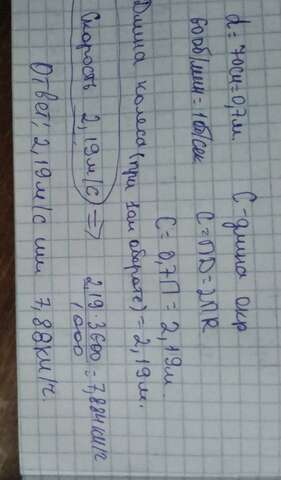 d = 70см = 0,7м.
60об/мин = 1об/сек
C - длина окр
C = ПD = 2ПR
C = 0,7П = 2,19м.
Длина колеса (при 1ом обороте) = 2,19м.
Скорость 2,19м/с => 2,19·3600/1000 = 7,884км/ч
Ответ: 2,19м/с или 7,88км/ч.